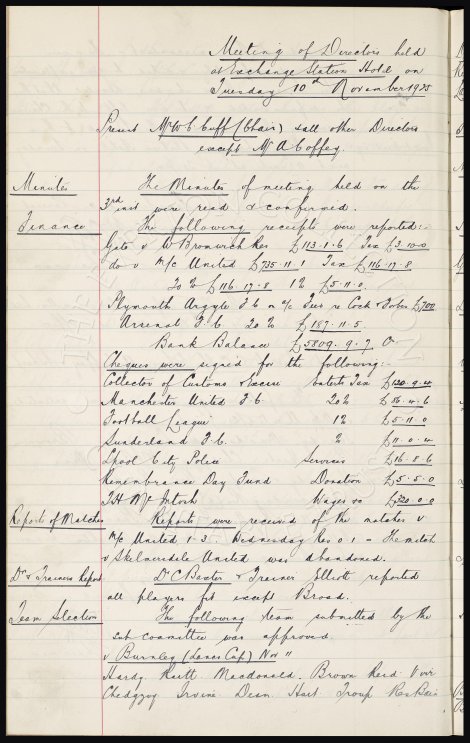 Meeting of Directors held
at Exchange Station Hotel on
Tuesday 10th November 1925
Present Mr W C Cuff (Chair) & all other Directors
except Mr A Coffey.
Minutes The Minutes of meeting held on the
3rd inst were read & confirmed.
Finance The following receipts were reported:-
Gate v W Bromwich Res £113.1.6 Tax £3.10.0
do v M/c United £735.11.1 Tax £116.17.8
20% £116.17.8 1% £5.11.0
Plymouth Argyle F.C. on a/c Fees re Cock & £700
Arsenal F.C. 20% £187.11.5
Bank Balance £5809.9.7 O
Cheques were signed for the following:-
Collector of Customs & Excise Entertts Tax £120.9.4
Manchester United F.C. 20% £86.4.6
Football League 1% £5.11.0
Sunderland F.C. % £11.0.4
Lpool City Police Services £16.8.6
Remembrance Day Fund Donation £5.5.0
T.H. McIntosh Wages &c £320.0.0
Reports of Matches Reports were received of the matches v
M/c United 1-3 Wednesday Res 0-1 - The match
v Skelmersdale United was abandoned.
Dr & Trainers Report Dr C Baxter & Trainer Elliott reported
all players fit except Broad.
Team Selection The following team submitted by the
sub-committee was approved.
v Burnley (Lancs Cup) Nov 11
Hardy Raitt Macdonald. Brown Reid Virr
Chedgzoy Irvine Dean Hart Troup Res Bain